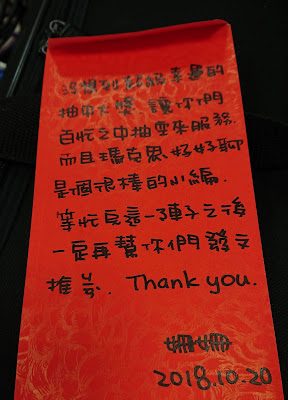 沒想到能幸運的
抽中大獎, 讓你們
百忙之中抽空來服務.
而且瑪克思好好聊
是個很棒的小編.
等忙完這一陣子之後
一定再幫你們發文
推薦. Thank you.
姍姍
2018.10.20